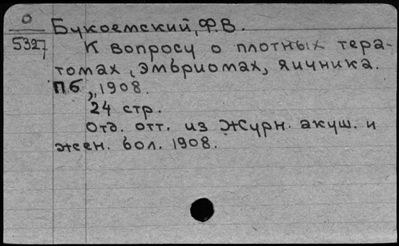 О
5327
Букоемский, Ф.В.
К вопросу о плотных тера-
томах, эмбриомах, яичника.
Пб, 1908.
24 стр.
Отд. отт. из Журн. акуш. и
жен. бол. 1908.